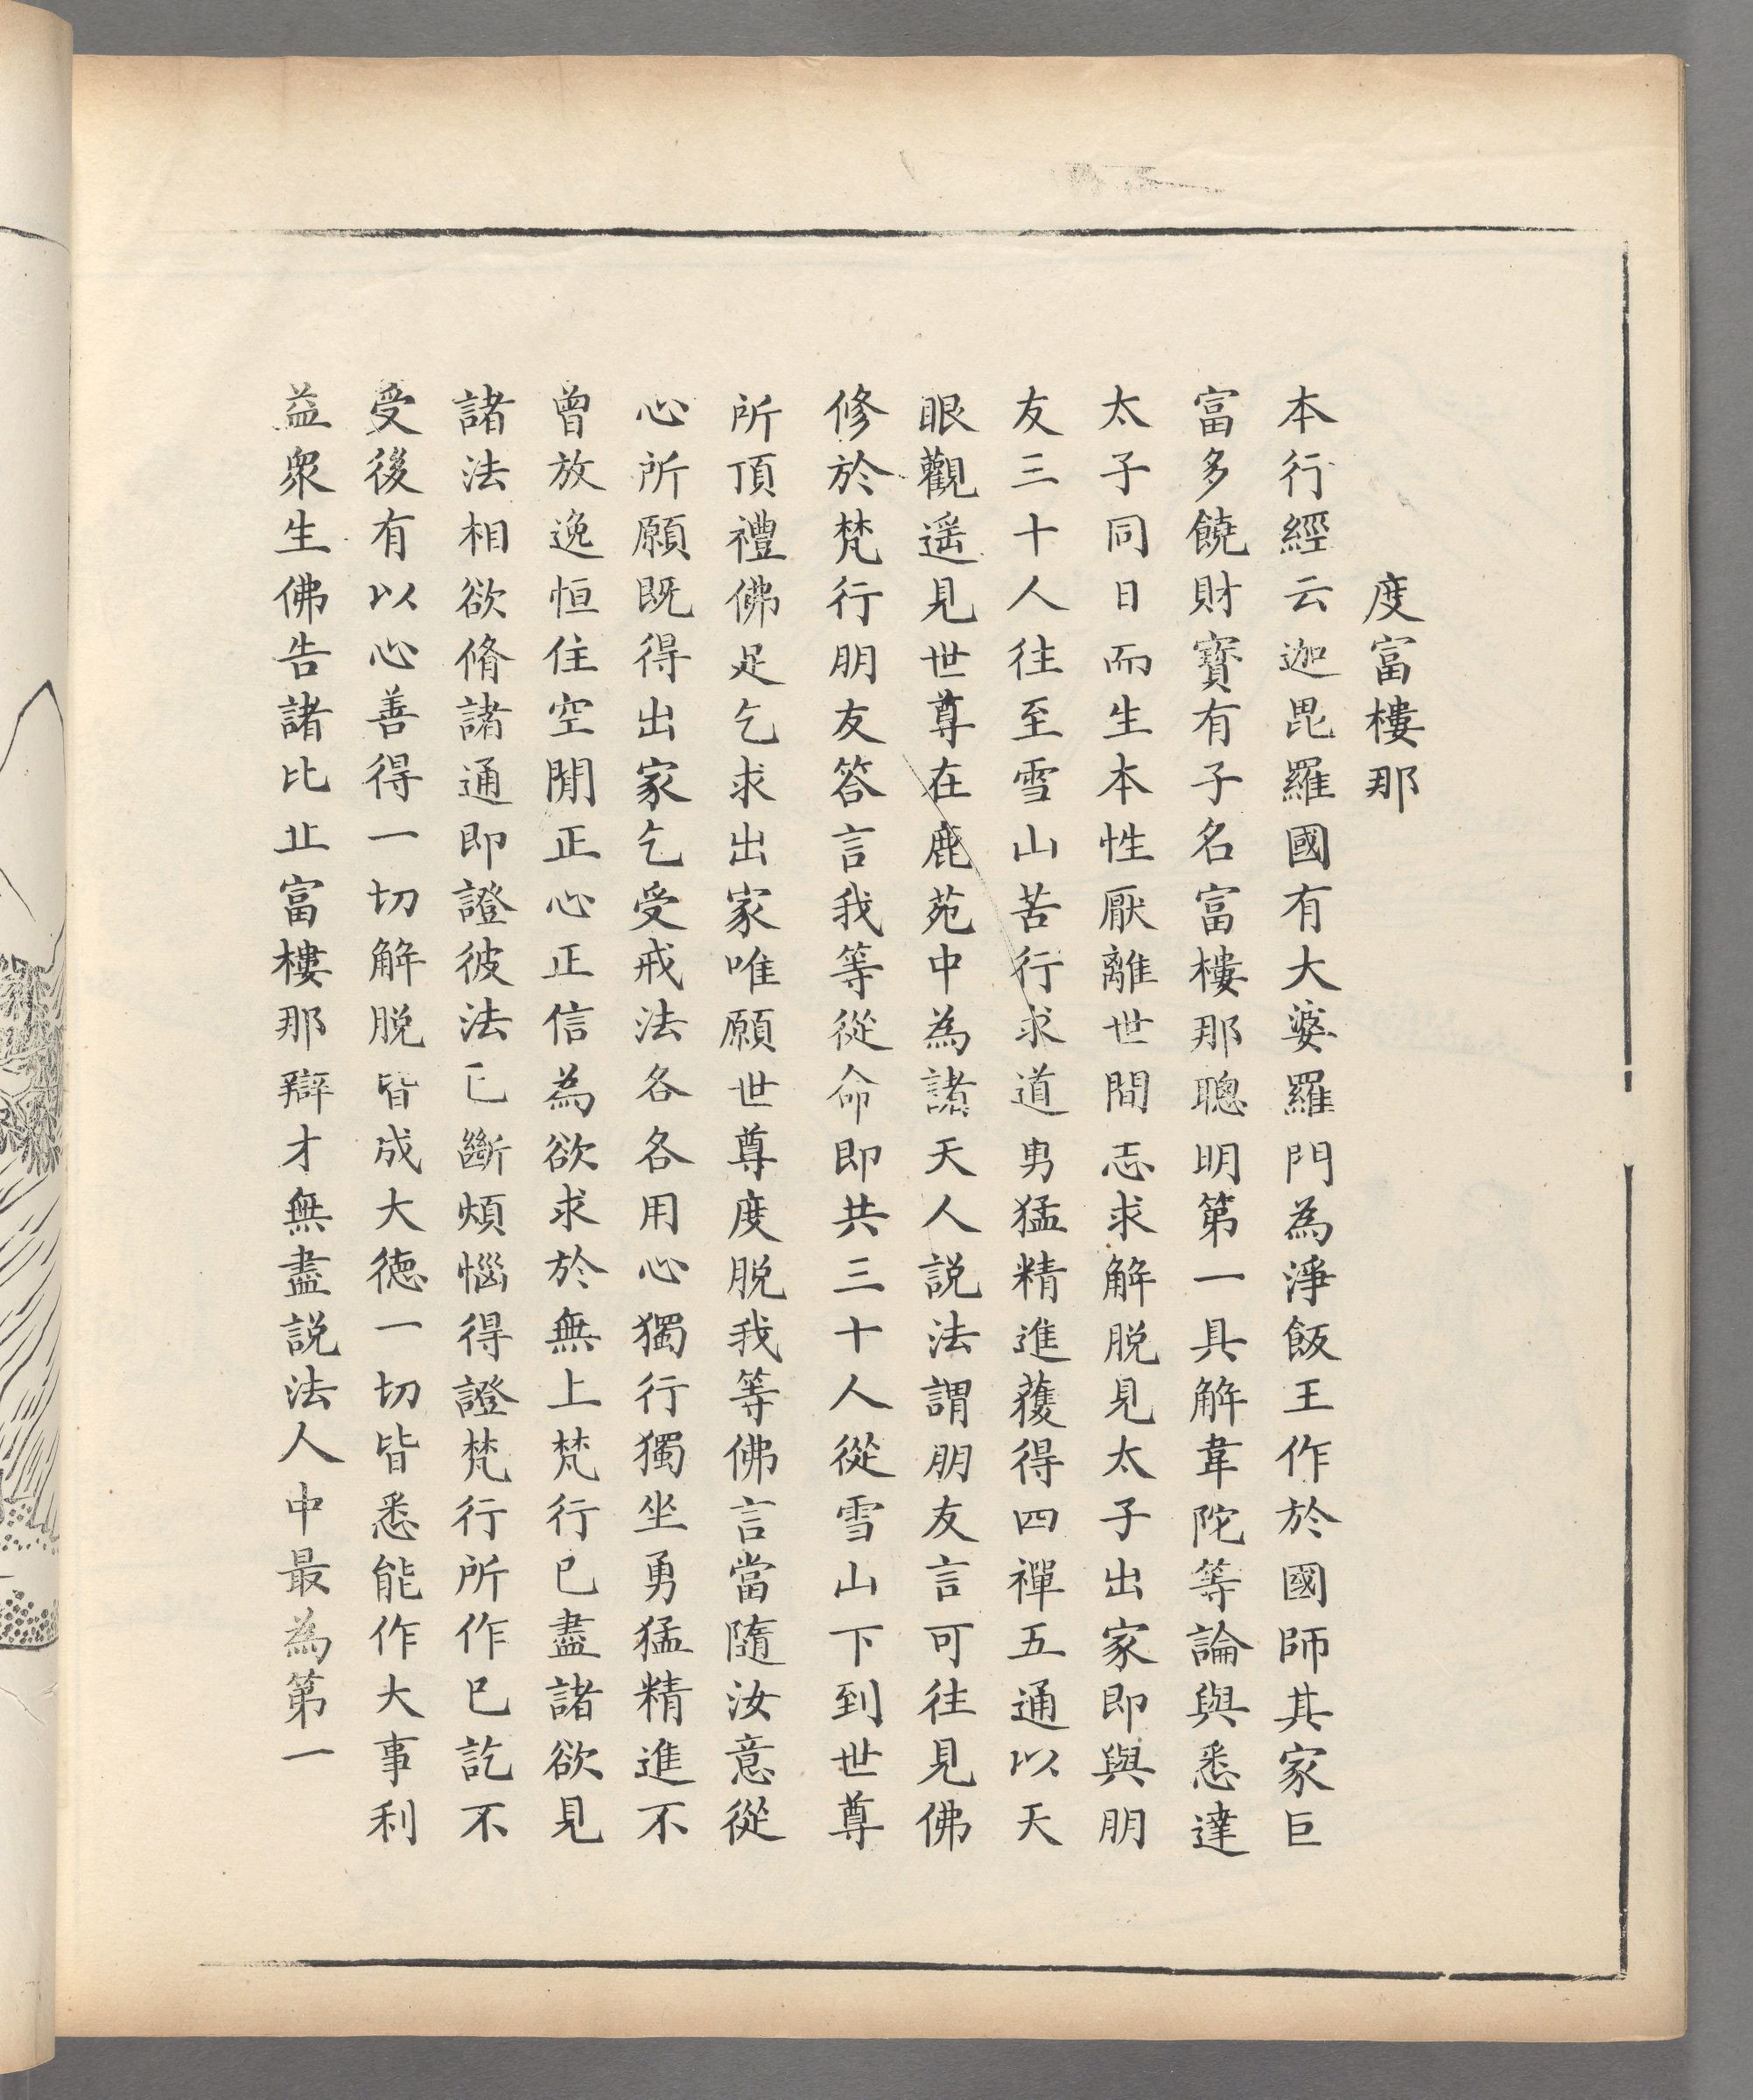 度富樓那
本行經云迦毘羅國有大婆羅門為淨飯王作於國師其家巨
富多饒財寶有子名富樓那聰明第一具解韋陀等論與悉達
太子同日而生本性厭離世間志求解脫見太子出家即與朋
友三十人往至雪山苦行求道勇猛精進獲得四禪五通以天
眼觀遥見世尊在鹿苑中為諸天人說法謂朋友言可往見佛
修於梵行朋友答言我等從命即共三十人從雪山下到世尊
所頂禮佛足乞求出家唯願世尊度脫我等佛言當隨汝意從
心所願既得出家乞受戒法各各用心獨行獨坐勇猛精進不
曾放逸恒住空閒正心正信為欲求於無上梵行已盡諸欲見
諸法相欲脩諸通即證彼法已斷煩惱得證梵行所作已訖不
受後有以心善得一切解脫皆成大德一切皆悉能作大事利
益眾生佛告諸比丘富樓那辯才無盡說法人中最為第一